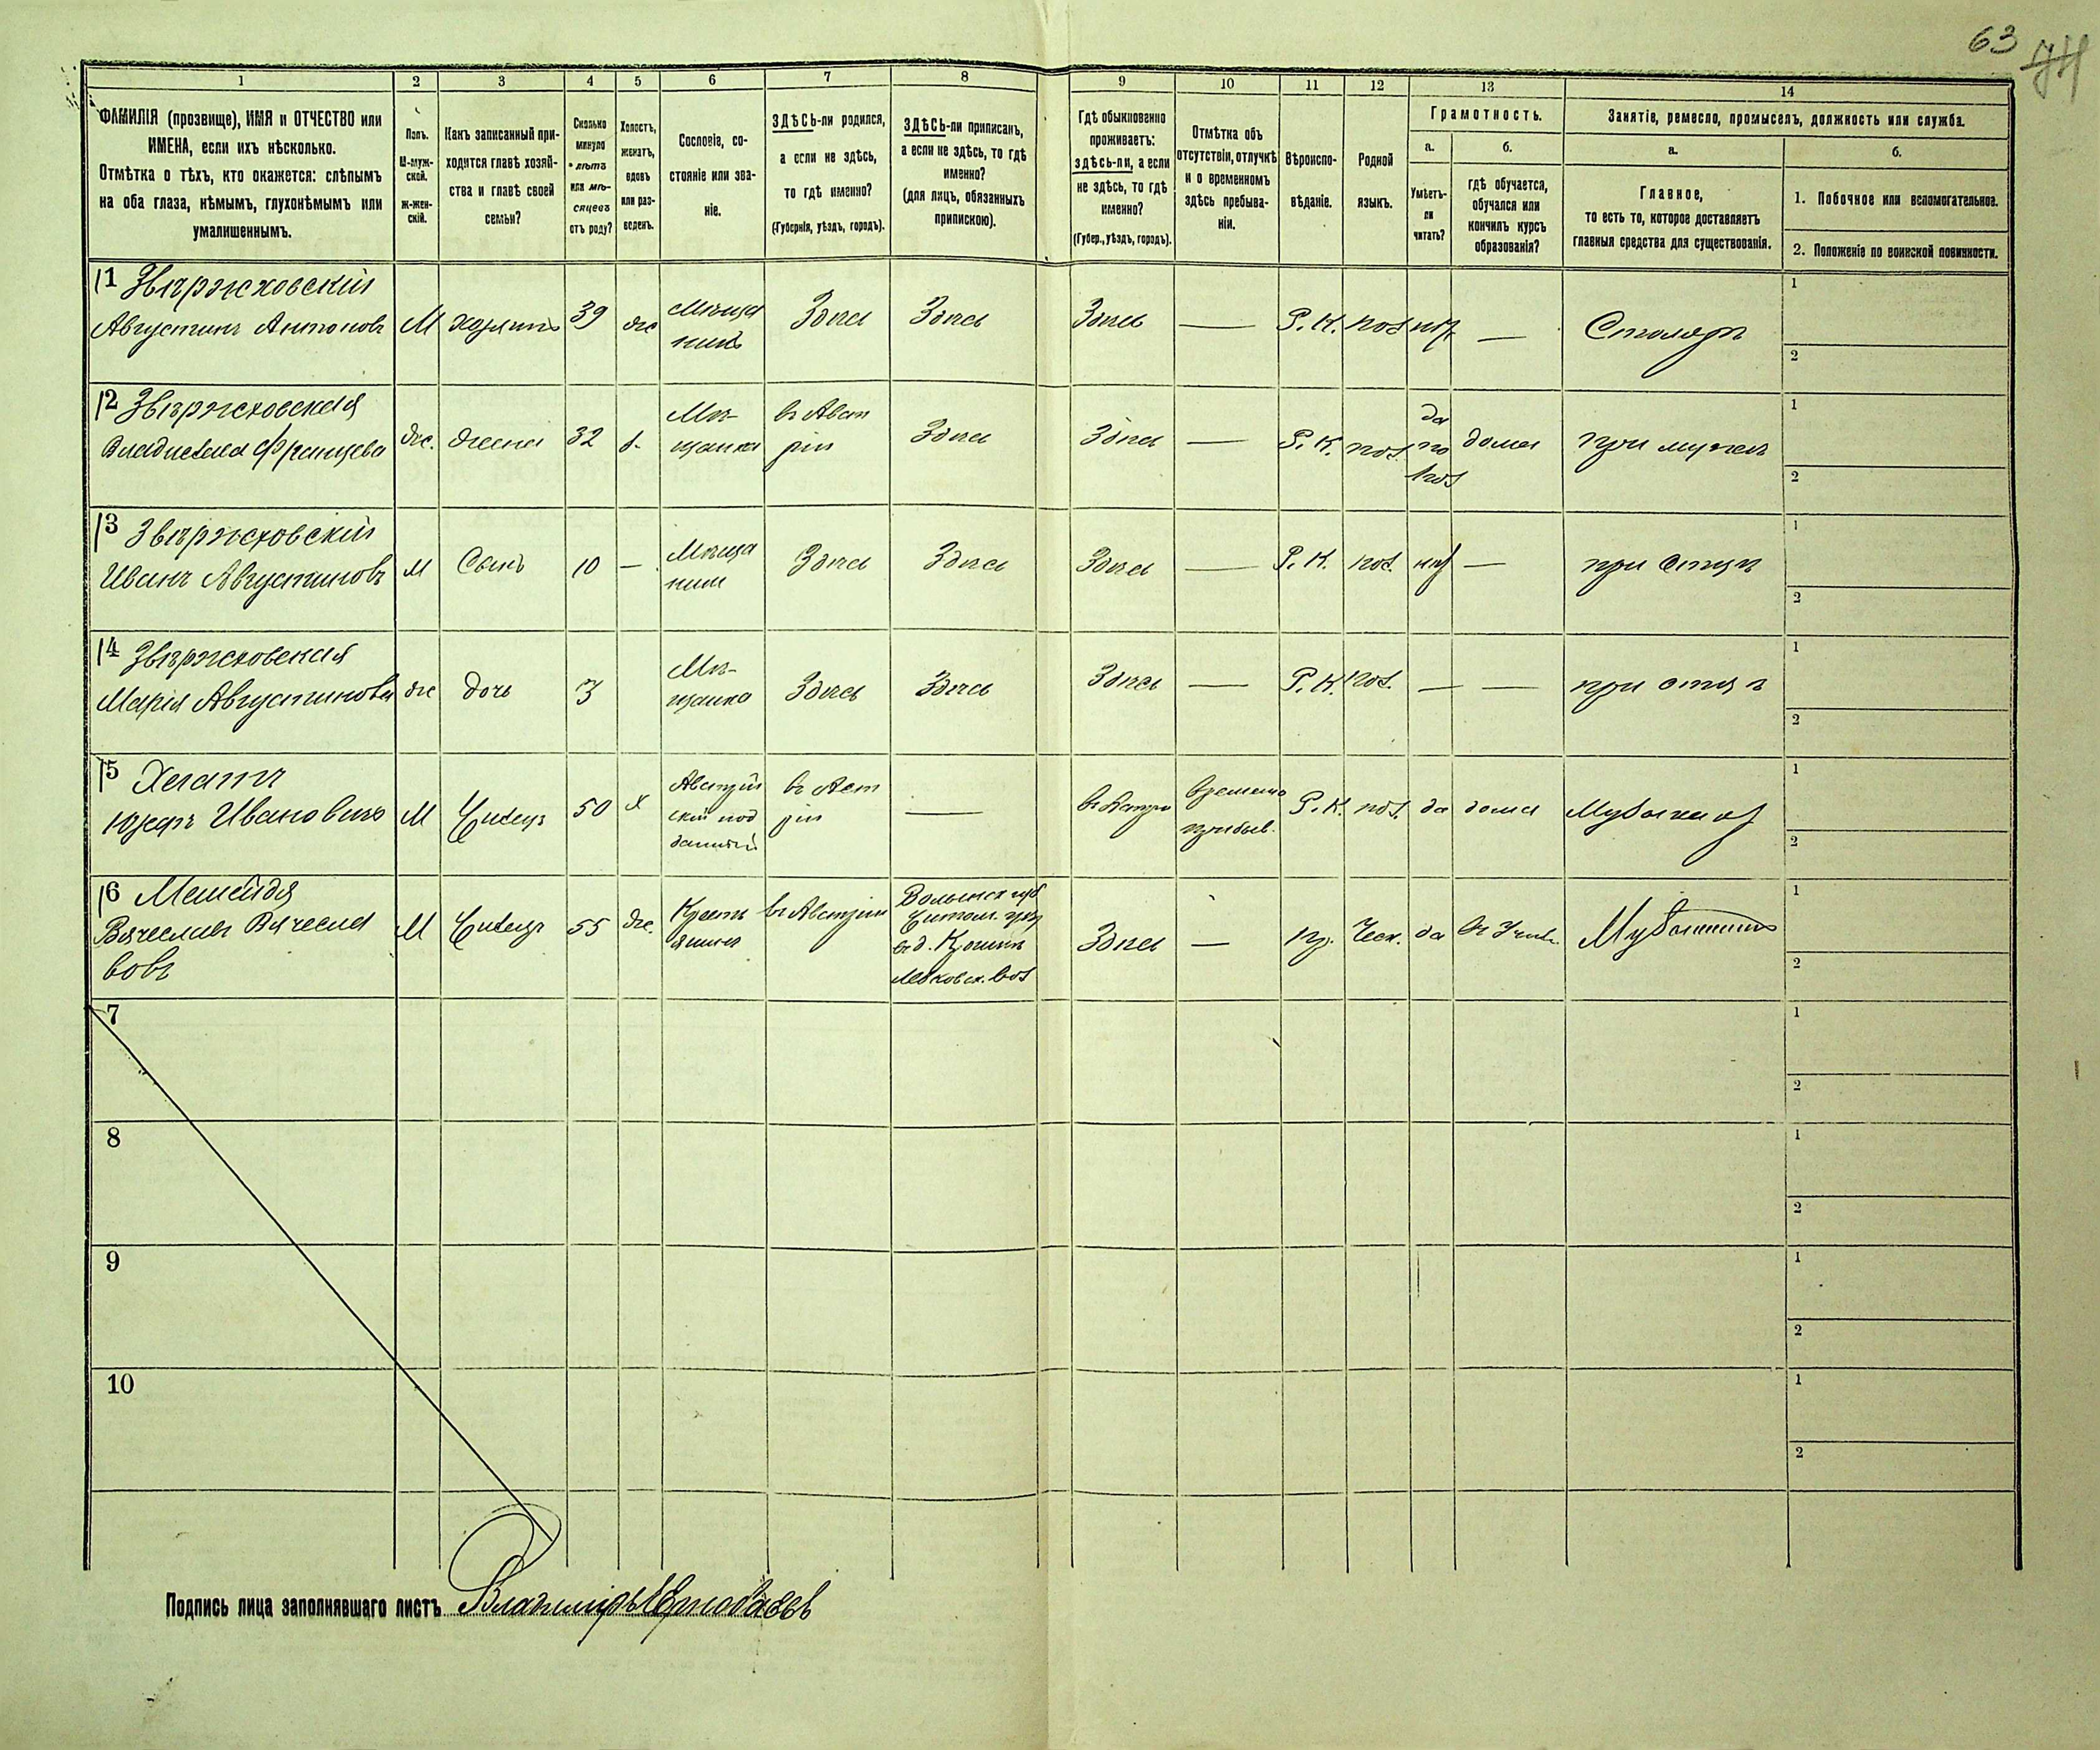 63 74
1 2 3 4 5 6 7 8 9 10 11 12 13 14
ФАМИЛІЯ (прозвище), ИМЯ и ОТЧЕСТВО или
ИМЕНА, если ихъ нѣсколько.
Отмѣтка о тѣхъ, кто окажется: слѣпымъ
на оба глаза, нѣмымъ, глухонѣмымъ или
умалишеннымъ.
Полъ.
М-муж-
ской.
Ж-жен-
скій.
Какъ записанный при-
ходится главѣ хозяй-
ства и главѣ своей
семьи?
Сколько
минуло
лѣтъ
или мѣ-
сяцевъ
отъ роду?
Холостъ,
женатъ,
вдовъ
или раз-
веденъ.
Сословіе, со-
стояніе или зва-
ніе.
ЗДѢСЬ-ли родился,
а если не здѣсь,
то гдѣ именно?
(Губернія, уѣздъ, городъ).
ЗДѢСЬ-ли приписанъ,
а если не здѣсь, то гдѣ
именно?
(для лицъ, обязанныхъ
припискою).
Гдѣ обыкновенно
проживаетъ:
здѣсь-ли, а если
не здѣсь, то гдѣ
именно?
(Губер., уѣздъ, городъ).
Отмѣтка объ
отсутствіи, отлучкѣ
и о временномъ
здѣсь пребыва-
ніи.
Вѣроиспо-
вѣданіе.
Родной
языкъ.
Грамотность.
а.
Умѣетъ-
ли
читать?
б.
гдѣ обучается,
обучался или
кончилъ курсъ
образованія?
Занятіе, ремесло, промыселъ, должность или служба.
а.
Главное,
то есть то, которое доставляетъ
главныя средства для существованія.
б.
1. Побочное или вспомогательное.
2. Положеніе по воинской повинности.
1 Звѣржховскій
Августинъ Антоновъ
М
хозяинъ
39
же
Мѣща
нинъ
Здѣсь
Здѣсь
Здѣсь
—
Р. К.
пол
нѣт
—
Столяръ
1
2
2 Звѣржховская
Францева
же.
жена
32
Мѣ-
щанка
въ Авст
ріи
Здѣсь
Здѣсь
—
Р. К.
пол.
да
по
пол
дома
при мужѣ
1
2
3 Звѣржховскій
Иванъ Августиновъ
М
Сынъ
10
—
Мѣща
нин
Здѣсь
Здѣсь
Здѣсь
—
Р. К.
пол.
нѣт
—
при отцѣ
1
2
4 Звѣржховская
Марія Августиновна
же
дочь
3
Мѣ-
щанка
Здѣсь
Здѣсь
Здѣсь
—
Р. К.
пол.
—
—
при отцѣ
1
2
5
Ивановичъ
М
Жилецъ
50
х
Австрій
скій под
данный
въ Авст
ріи
—
въ Австріи
временно
прибыв.
Р. К.
пол.
да
дома
Музыкант
1
2
6
Вячеславъ Вячесла
вовъ
М
Жилецъ
55
же.
Кресть
янинъ
въ Австріи
Волынск губ
Житом. уѣз
Здѣсь
—
пр.
Чеш.
да
Музыкантъ
1
2
7
1
2
8
1
2
9
1
2
10
1
2
Подпись лица заполнявшаго листъ Владиміръ